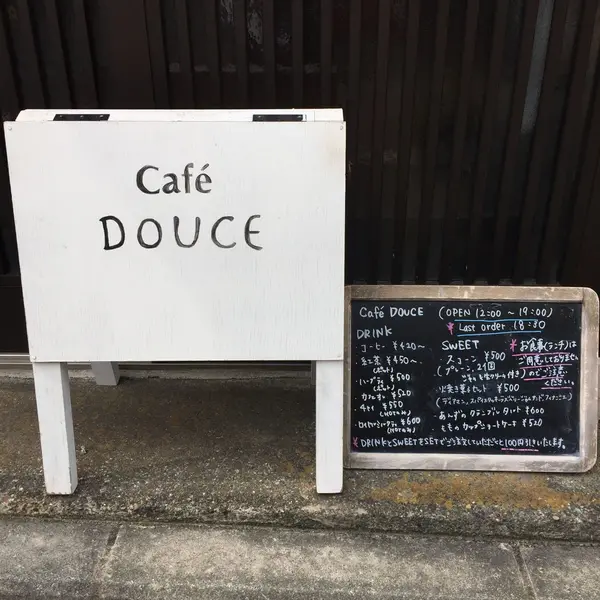 Café
DOUCE
Café DOUCE (OPEN 12:00 ~ 19:00)
* Last order 18:30
DRINK
コーヒー ¥420~
紅茶 ¥450~
(ポット)
ハーブティ ¥500
(ポット)
カフェオレ ¥520
チャイ ¥550
(HOT only)
ロイヤルミルクティ ¥600
(HOT only)
SWEET
スコーン ¥500
(プレーン, 2個
* お食事(ランチ)は
ご用意しておりません
のでご注意
ください。
焼き菓子セット ¥500
あんずのクランブルタルト ¥600
ももの カップショートケーキ ¥520
* DRINKとSWEETをSETでご注文していただくと100円引きいたします。